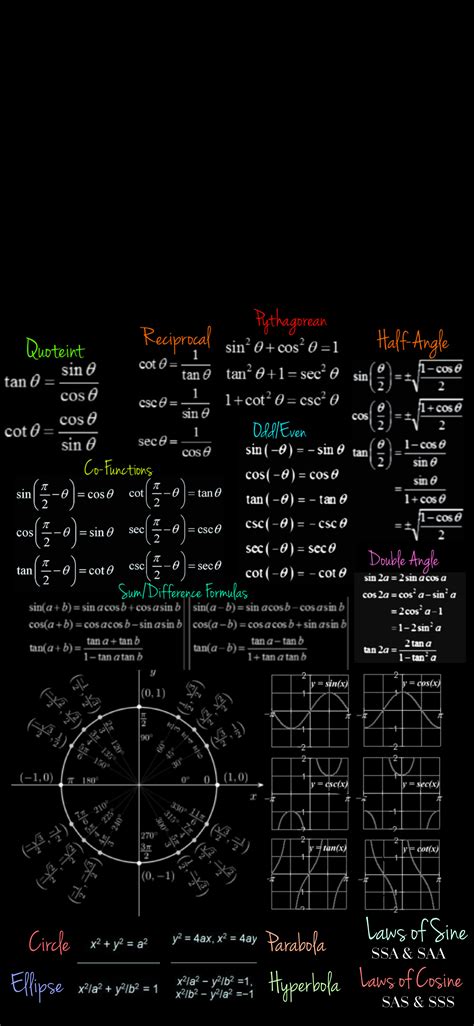 Quoteint
tan θ = sin θ / cos θ
cot θ = cos θ / sin θ
Reciprocal
cot θ = 1 / tan θ
csc θ = 1 / sin θ
sec θ = 1 / cos θ
Pythagorean
sin² θ + cos² θ = 1
tan² θ + 1 = sec² θ
1 + cot² θ = csc² θ
Half-Angle
sin (θ/2) = ±√((1 − cos θ)/2)
cos (θ/2) = ±√((1 + cos θ)/2)
tan (θ/2) = (1 − cos θ) / sin θ
= sin θ / (1 + cos θ)
Odd/Even
sin(−θ) = − sin θ
cos(−θ) = cos θ
tan(−θ) = − tan θ
csc(−θ) = − csc θ
sec(−θ) = sec θ
cot(−θ) = − cot θ
Co-Functions
sin(π/2 − θ) = cos θ
cos(π/2 − θ) = sin θ
tan(π/2 − θ) = cot θ
cot(π/2 − θ) = tan θ
sec(π/2 − θ) = csc θ
csc(π/2 − θ) = sec θ
Double Angle
sin 2a = 2 sin a cos a
cos 2a = cos² a − sin² a
= 2cos² a − 1
= 1 − 2 sin² a
tan 2a = 2 tan a / (1 − tan² a)
Sum/Difference Formulas
sin(a + b) = sin a cos b + cos a sin b
cos(a + b) = cos a cos b − sin a sin b
tan(a + b) = (tan a + tan b) / (1 − tan a tan b)
sin(a − b) = sin a cos b − cos a sin b
cos(a − b) = cos a cos b + sin a sin b
tan(a − b) = (tan a − tan b) / (1 + tan a tan b)
y
(0, 1)
π/2
90°
(−1, 0) π 180° 0° 0 (1, 0)
x
270°
3π/2
(0, −1)
y = sin(x)
y = cos(x)
y = csc(x)
y = sec(x)
y = tan(x)
y = cot(x)
Circle
x² + y² = a²
y² = 4ax, x² = 4ay
Parabola
Ellipse
x²/a² + y²/b² = 1
x²/a² − y²/b² =1,
x²/b² − y²/a² =−1
Hyperbola
Laws of Sine
SSA & SAA
Laws of Cosine
SAS & SSS